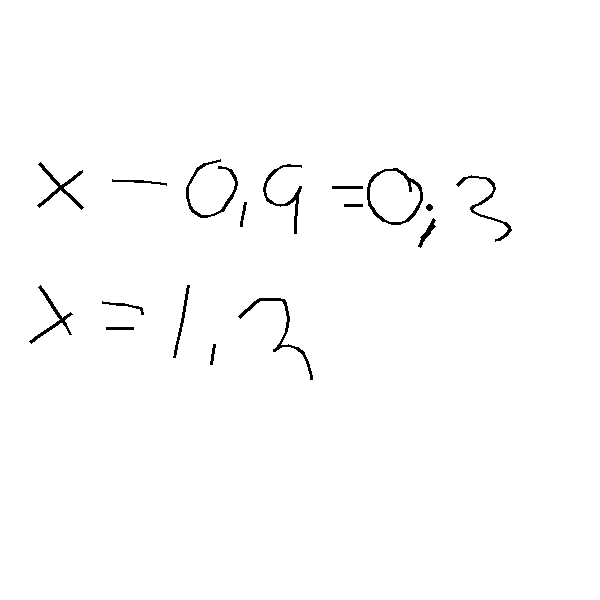 x - 0,9 = 0,3
x = 1,2